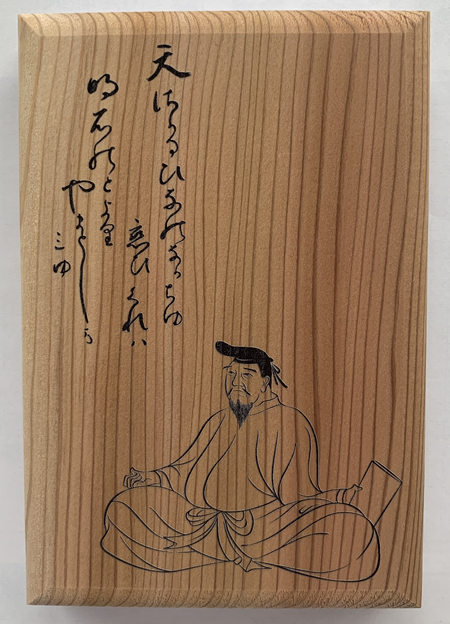 天さかるひなのなかちゆ
恋ひくれハ
明石のとより
やまとしま
三ゆ